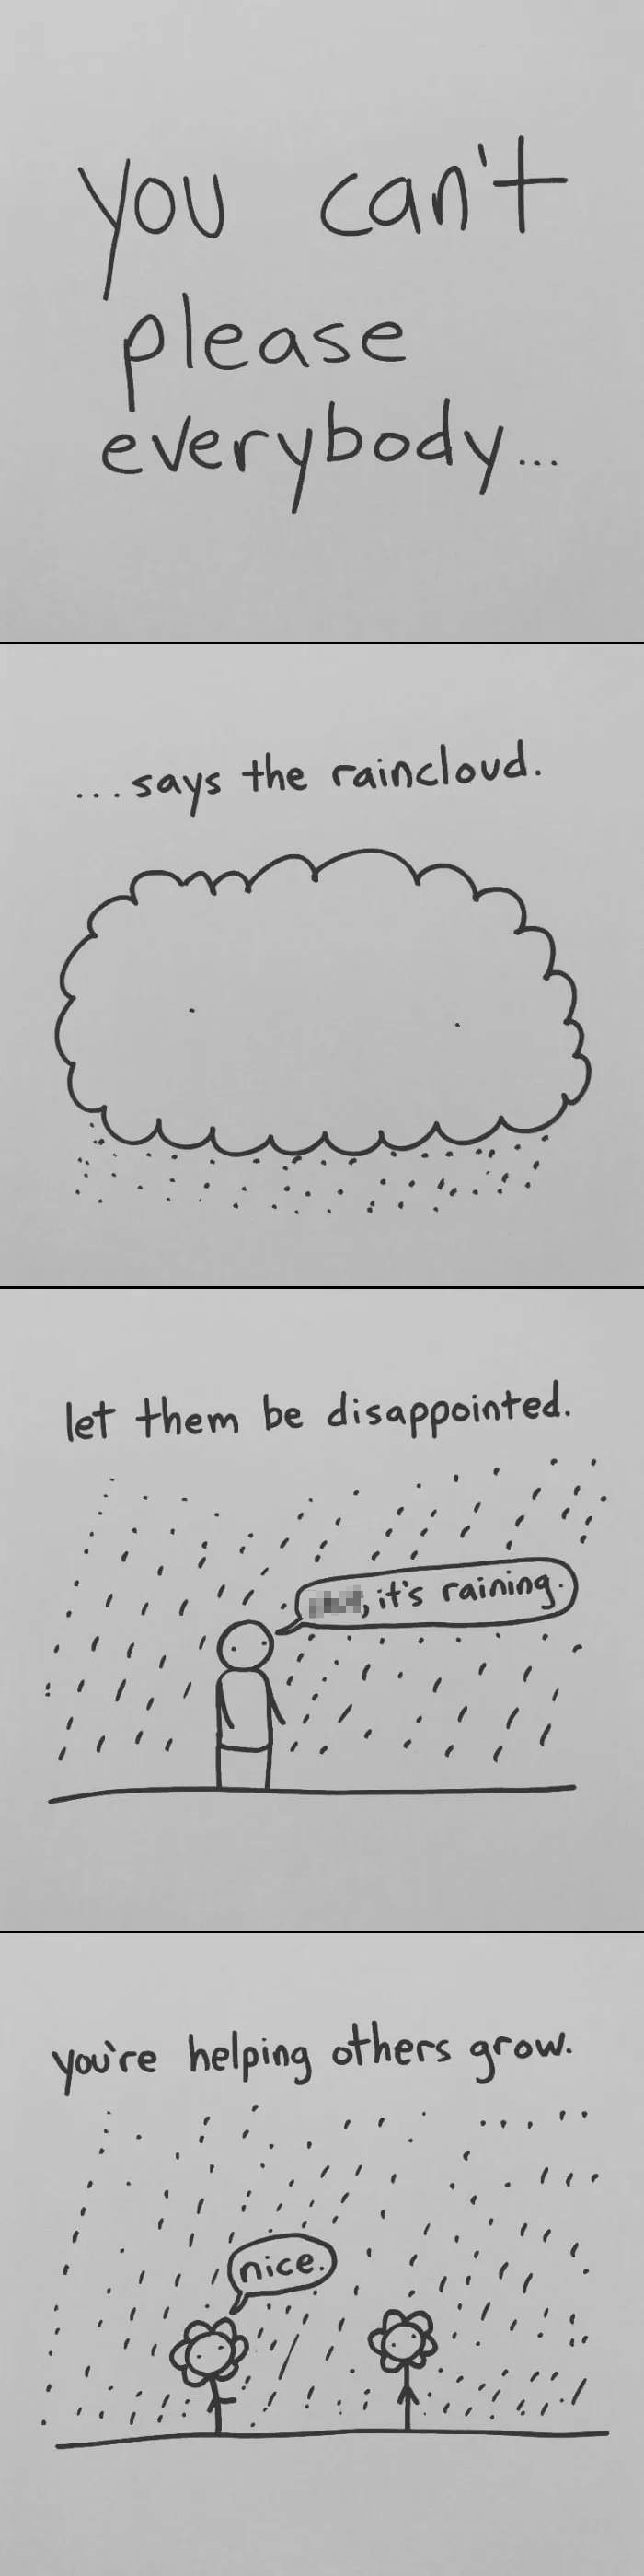 you can't
please
everybody...
...says the raincloud.
let them be disappointed.
, it's raining.
you're helping others grow.
nice.